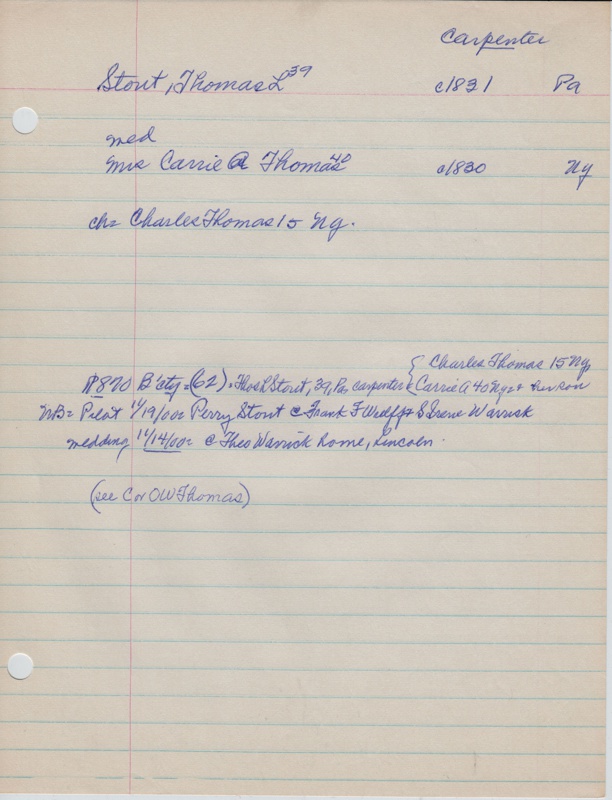 Carpenter
Stout, Thomas L 39 c1831 Pa
med
Mrs Carrie A Thomas 40 c1830 Ny
ch= Charles Thomas 15 Ny.
{ Charles Thomas 15 Ny
1870 B'cty = (62). Thos L Stout, 39, Pa, carpenter & Carrie A 40 Ny & her son
NB= Pilot 11/19/00= Perry Stout @ Frank F & S Irene Warrick
wedding 11/14/00= @ Theo Warrick home, Lincoln.
(see C or OW Thomas)